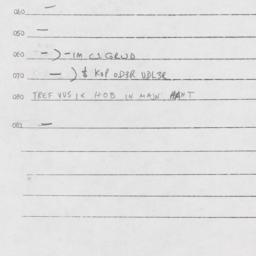 040 —
050 —
060 —) -IM CJGRUD
070 —) $ KOP OD3R UDL3R
080 TREF VVS IK HOB IN MAJN HANT
081 —